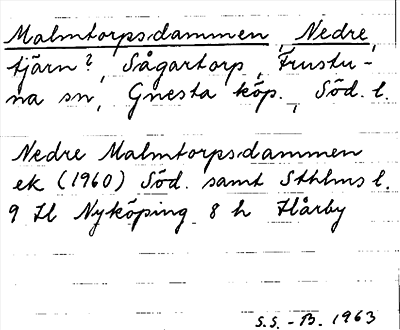 Malmtorpsdammen, Nedre,
tjärn?, Sågartorp, Frustu-
na sn, Gnesta köp., Söd. l.
Nedre Malmtorpsdammen
ek (1960) Söd. samt Sthlms l.
9 Il Nyköping 8 h Flårby
S.S. - B. 1963